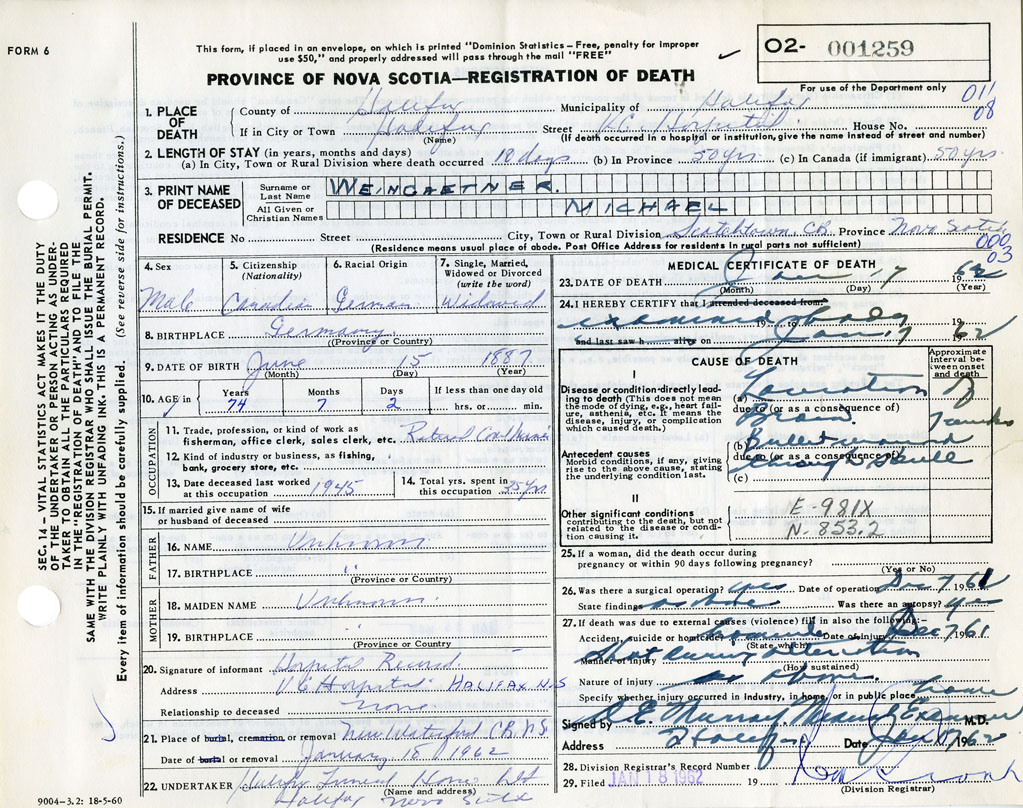 FORM 6
This form, if placed in an envelope, on which is printed "Dominion Statistics – Free, penalty for improper
use $50," and properly addressed will pass through the mail "FREE"
PROVINCE OF NOVA SCOTIA—REGISTRATION OF DEATH
O2- 001259
For use of the Department only
011
08
1. PLACE OF DEATH
County of Halifax Municipality of Halifax
If in City or Town Halifax Street V.G. Hospital House No.
(Name) (If death occurred in a hospital or institution, give the name instead of street and number)
2. LENGTH OF STAY (in years, months and days)
(a) In City, Town or Rural Division where death occurred 10 days (b) In Province 50 yrs. (c) In Canada (if immigrant) 50 yrs.
3. PRINT NAME OF DECEASED
Surname or Last Name WEINGAETNER.
All Given or Christian Names MICHAEL
RESIDENCE No Street City, Town or Rural Division Scotchtown, CB Province Nova Scotia
(Residence means usual place of abode. Post Office Address for residents in rural parts not sufficient)
000
03
4. Sex Male
5. Citizenship (Nationality) Canadian
6. Racial Origin German
7. Single, Married, Widowed or Divorced (write the word) Widowed
8. BIRTHPLACE Germany
(Province or Country)
9. DATE OF BIRTH June 15 1887
(Month) (Day) (Year)
10. AGE Years 74 Months 7 Days 2 If less than one day old hrs. or min.
OCCUPATION
11. Trade, profession, or kind of work as fisherman, office clerk, sales clerk, etc. Retired Coal Miner
12. Kind of industry or business, as fishing, bank, grocery store, etc.
13. Date deceased last worked at this occupation 1945
14. Total yrs. spent in this occupation 35 yrs
15. If married give name of wife or husband of deceased
FATHER
16. NAME Unknown
17. BIRTHPLACE "
(Province or Country)
MOTHER
18. MAIDEN NAME Unknown.
19. BIRTHPLACE "
(Province or Country)
20. Signature of informant Hospital Record
Address V G Hospital HALIFAX N-S
Relationship to deceased none
21. Place of burial, cremation or removal New Waterford CB, NS
Date of burial or removal January 18 1962
22. UNDERTAKER Funeral Home Ltd
(Name and address)
Halifax Nova Scotia
9004-3.2: 18-5-60
MEDICAL CERTIFICATE OF DEATH
23. DATE OF DEATH Jan 17 1962
(Month) (Day) (Year)
24. I HEREBY CERTIFY that I attended deceased from:
examined body 19 to 19
and last saw h alive on Jan 17 1962
CAUSE OF DEATH
Approximate interval between onset and death
I
Disease or condition directly leading to death (This does not mean the mode of dying, e.g., heart failure, asthenia, etc. It means the disease, injury, or complication which caused death.)
(a) Laceration of
due to (or as a consequence of)
brain
Antecedent causes
Morbid conditions, if any, giving rise to the above cause, stating the underlying condition last.
(b) Bullet wound
due to (or as a consequence of)
through skull
(c)
II
Other significant conditions contributing to the death, but not related to the disease or condition causing it.
E-981X
N-853.2
25. If a woman, did the death occur during pregnancy or within 90 days following pregnancy?
(Yes or No)
26. Was there a surgical operation? yes Date of operation Dec 7 1961
State findings as above Was there an autopsy? yes
27. If death was due to external causes (violence) fill in also the following:-
Accident, suicide or homicide? homicide Date of injury Dec 7 1961
(State which)
Manner of injury Shot during altercation
(How sustained)
Nature of injury as above.
Specify whether injury occurred in industry, in home, or in public place home
Signed by A.E. Murray Medical Examiner M.D.
Address Halifax Date Jan 17 1962
28. Division Registrar's Record Number
29. Filed JAN 18 1962 19
(Division Registrar)
SEC. 14 – VITAL STATISTICS ACT MAKES IT THE DUTY
OF THE UNDERTAKER OR PERSON ACTING AS UNDER-
TAKER TO OBTAIN ALL THE PARTICULARS REQUIRED
IN THE "REGISTRATION OF DEATH" AND TO FILE THE
SAME WITH THE DIVISION REGISTRAR WHO SHALL ISSUE THE BURIAL PERMIT.
WRITE PLAINLY WITH UNFADING INK. THIS IS A PERMANENT RECORD.
Every item of information should be carefully supplied. (See reverse side for instructions.)